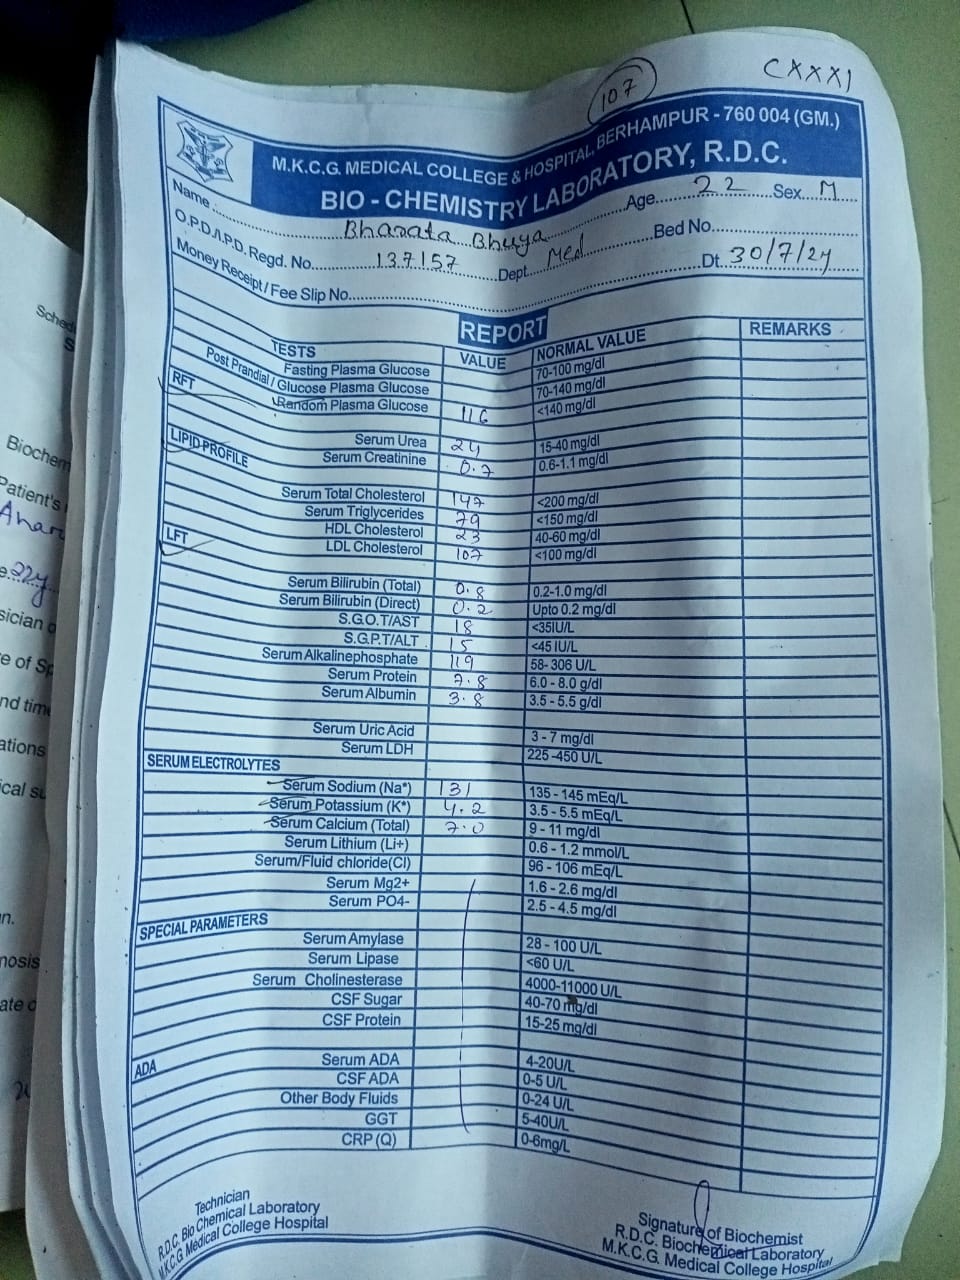 CXXXI
107
M.K.C.G. MEDICAL COLLEGE & HOSPITAL, BERHAMPUR - 760 004 (GM.)
BIO - CHEMISTRY LABORATORY, R.D.C.
Name Bharata Bhuya Age 22 Sex M
O.P.D./I.P.D. Regd. No. 137157 Dept. Med Bed No.
Money Receipt / Fee Slip No. Dt. 30/7/24
REPORT
TESTS VALUE NORMAL VALUE REMARKS
Fasting Plasma Glucose 70-100 mg/dl
Post Prandial / Glucose Plasma Glucose 70-140 mg/dl
Random Plasma Glucose 116 <140 mg/dl
RFT
Serum Urea 24 15-40 mg/dl
Serum Creatinine 0.7 0.6-1.1 mg/dl
LIPID PROFILE
Serum Total Cholesterol 147 <200 mg/dl
Serum Triglycerides 79 <150 mg/dl
HDL Cholesterol 23 40-60 mg/dl
LDL Cholesterol 107 <100 mg/dl
LFT
Serum Bilirubin (Total) 0.8 0.2-1.0 mg/dl
Serum Bilirubin (Direct) 0.2 Upto 0.2 mg/dl
S.G.O.T/AST 18 <35IU/L
S.G.P.T/ALT 15 <45 IU/L
Serum Alkalinephosphate 119 58- 306 U/L
Serum Protein 7.8 6.0 - 8.0 g/dl
Serum Albumin 3.8 3.5 - 5.5 g/dl
Serum Uric Acid 3 - 7 mg/dl
Serum LDH 225-450 U/L
SERUM ELECTROLYTES
Serum Sodium (Na⁺) 131 135 - 145 mEq/L
Serum Potassium (K⁺) 4.2 3.5 - 5.5 mEq/L
Serum Calcium (Total) 7.0 9 - 11 mg/dl
Serum Lithium (Li+) 0.6 - 1.2 mmol/L
Serum/Fluid chloride(Cl) 96 - 106 mEq/L
Serum Mg2+ 1.6 - 2.6 mg/dl
Serum PO4- 2.5 - 4.5 mg/dl
SPECIAL PARAMETERS
Serum Amylase 28 - 100 U/L
Serum Lipase <60 U/L
Serum Cholinesterase 4000-11000 U/L
CSF Sugar 40-70 mg/dl
CSF Protein 15-25 mg/dl
ADA
Serum ADA 4-20U/L
CSF ADA 0-5 U/L
Other Body Fluids 0-24 U/L
GGT 5-40U/L
CRP (Q) 0-6mg/L
Technician
R.D.C. Bio Chemical Laboratory
M.K.C.G Medical College Hospital
Signature of Biochemist
R.D.C. Biochemical Laboratory
M.K.C.G. Medical College Hospital
Biochem
Patient's
22y